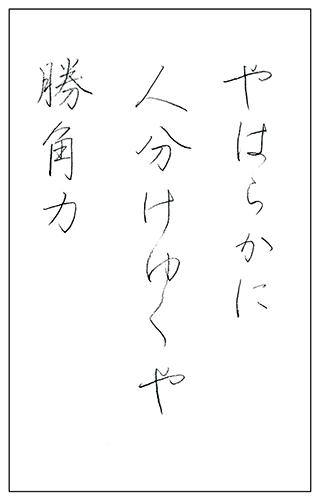 やはらかに
人分けゆくや
勝角力